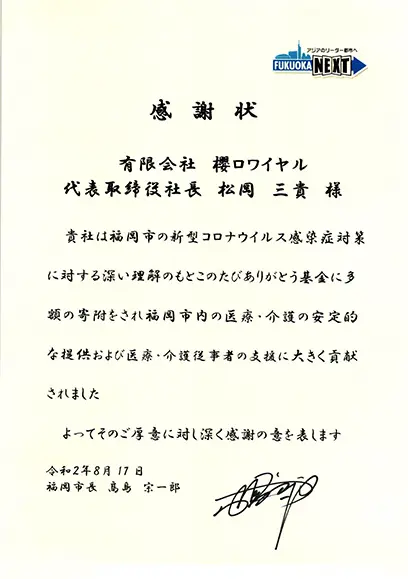 アジアのリーダー都市へ
FUKUOKA NEXT
感謝状
有限会社 櫻ロワイヤル
代表取締役社長 松岡 三貴 様
貴社は福岡市の新型コロナウイルス感染症対策
に対する深い理解のもとこのたびありがとう基金に多
額の寄附をされ福岡市内の医療・介護の安定的
な提供および医療・介護従事者の支援に大きく貢献
されました
よってそのご厚意に対し深く感謝の意を表します
令和2年8月17日
福岡市長 髙島 宗一郎